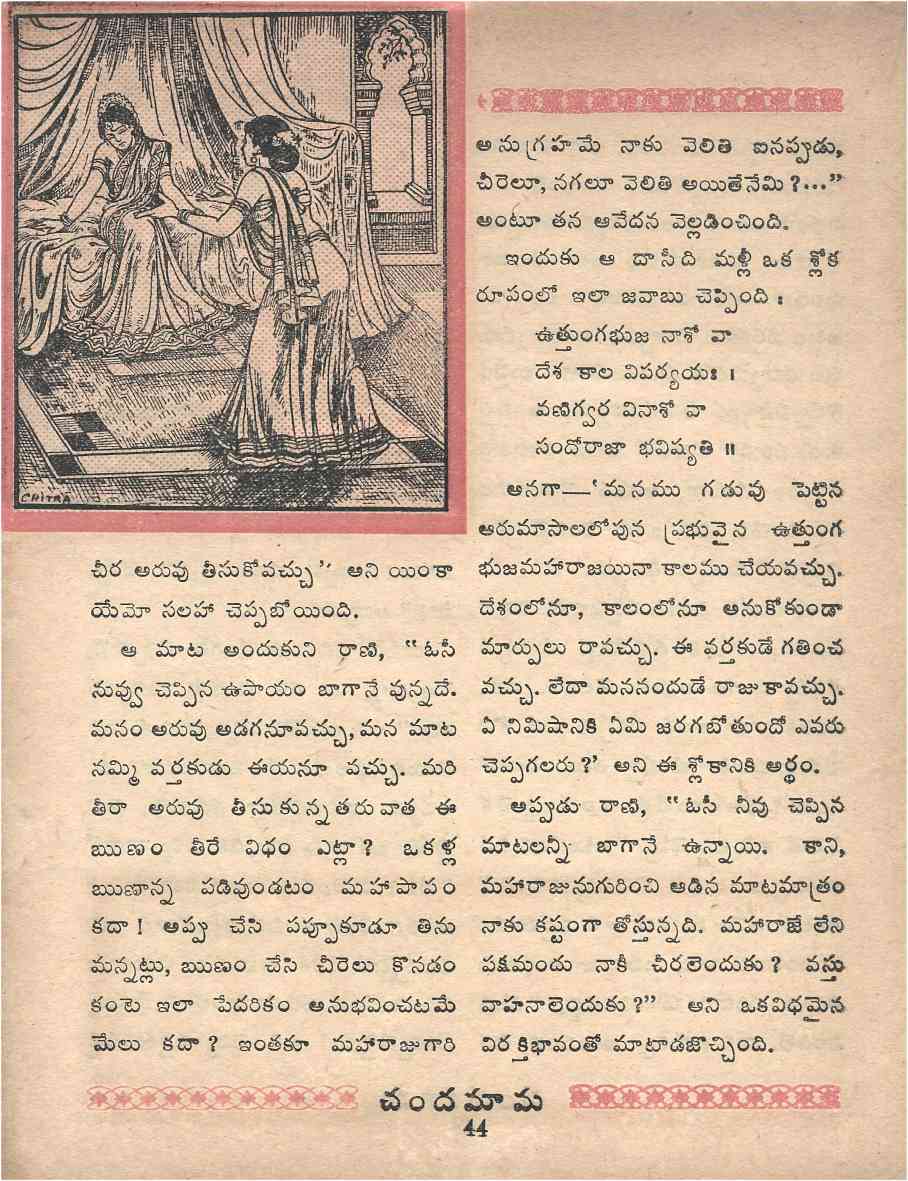 CHITRA
చీర అరువు తీసుకోవచ్చు’’ అని యింకా
యేమో సలహా చెప్పబోయింది.
ఆ మాట అందుకుని రాణి, “ఓసీ
నువ్వు చెప్పిన ఉపాయం బాగానే వున్నదే.
మనం అరువు అడగనూవచ్చు, మన మాట
నమ్మి వర్తకుడు ఈయనూ వచ్చు. మరి
తీరా అరువు తీసుకున్నతరువాత ఈ
ఋణం తీరే విధం ఎట్లా? ఒకళ్ల
ఋణాన్న పడివుండటం మహాపాపం
కదా! అప్పు చేసి పప్పూకూడూ తిను
మన్నట్లు, ఋణం చేసి చీరెలు కొనడం
కంటె ఇలా పేదరికం అనుభవించటమే
మేలు కదా? ఇంతకూ మహారాజుగారి
అనుగ్రహమే నాకు వెలితి ఐనప్పుడు,
చీరెలూ, నగలూ వెలితి అయితేనేమి?...”
అంటూ తన ఆవేదన వెల్లడించింది.
ఇందుకు ఆ దాసీది మళ్లీ ఒక శ్లోక
రూపంలో ఇలా జవాబు చెప్పింది :
ఉత్తుంగభుజ నాశో వా
దేశ కాల విపర్యయః ।
వణిగ్వర వినాశో వా
నందోరాజా భవిష్యతి ॥
అనగా—‘మనము గడువు పెట్టిన
ఆరుమాసాలలోపున ప్రభువైన ఉత్తుంగ
భుజమహారాజయినా కాలము చేయవచ్చు.
దేశంలోనూ, కాలంలోనూ అనుకోకుండా
మార్పులు రావచ్చు. ఈ వర్తకుడే గతించ
వచ్చు. లేదా మననందుడే రాజుకావచ్చు.
ఏ నిమిషానికి ఏమి జరగబోతుందో ఎవరు
చెప్పగలరు?’ అని ఈ శ్లోకానికి అర్థం.
అప్పుడు రాణి, “ఓసీ నీవు చెప్పిన
మాటలన్నీ బాగానే ఉన్నాయి. కాని,
మహారాజునుగురించి ఆడిన మాటమాత్రం
నాకు కష్టంగా తోస్తున్నది. మహారాజే లేని
పక్షమందు నాకీ చీరలెందుకు? వస్తు
వాహనాలెందుకు?” అని ఒకవిధమైన
విరక్తిభావంతో మాటాడజొచ్చింది.
చందమామ
44